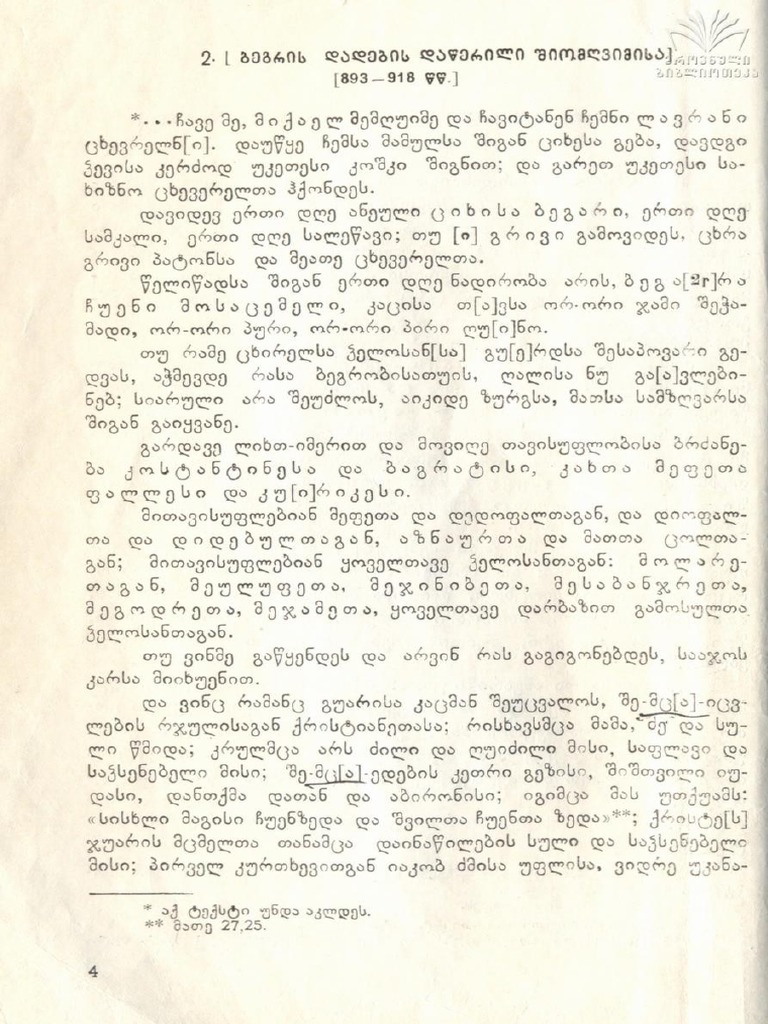 ეროვნული
ბიბლიოთეკა
2. [ ბეგრის დადების დაწერილი შიომღვიმისა]
[893—918 წწ.]
*...ჩავე მე, მიქაელ მემღუიმე და ჩავიტანენ ჩემნი ლავრანი
ცხევრელნ[ი]. დაუწყე ჩემსა მამულსა შიგან ციხესა გება, დავდგი
ჴევისა კერძოდ უკეთესი კოშკი შიგნით; და გარეთ უკეთესი სა-
ხიზნო ცხევერელთა ჰქონდეს.
დავიდევ ერთი დღე ანეული ციხისა ბეგარი, ერთი დღე
სამკალი, ერთი დღე სალეწავი; თუ [ი] გრივი გამოვიდეს, ცხრა
გრივი პატონსა და მეათე ცხევერელთა.
წელიწადსა შიგან ერთი დღე ნადირობა არის, ბეგა[2r]რა
ჩუენი მოსაცემელი, კაცისა თ[ა]ვსა ორ-ორი ჯამი შეჭა-
მადი, ორ-ორი პური, ორ-ორი პირი ღუ[ი]ნო.
თუ რამე ცხირელსა ჴელოსან[სა] გუ[ე]რდსა შესაპოვარი გე-
დვას, აჭმევდე რასა ბეგრობისათჳის, ღალისა ნუ გა[ა]ვლები-
ნებ; სიარული არა შეუძლოს, აიკიდე ზურგსა, მათსა სამზღვარსა
შიგან გაიყვანე.
გარდავე ლიხთ-იმერით და მოვიღე თავისუფლობისა ბრძანე-
ბა კოსტანტინესა და ბაგრატისი, კახთა მეფეთა
ფალლესი და კუ[ი]რიკესი.
მითავისუფლებიან მეფეთა და დედოფალთაგან, და დიოფალ-
თა და დიდებულთაგან, აზნაურთა და მათთა ცოლთა-
გან; მითავისუფლებიან ყოველთავე ჴელოსანთაგან: მოლარე-
თაგან, მეულუფეთა, მეჯინიბეთა, მესაბანჯრეთა,
მეგოდრეთა, მეჯამეთა, ყოველთავე დარბაზით გამოსულთა
ჴელოსანთაგან.
თუ ვინმე გაწყენდეს და არვინ რას გაგიგონებდეს, სააჯოს
კარსა მიიხუენით.
და ვინც რამანც გუარისა კაცმან შეუცვალოს, შე-მც[ა]-იცვ-
ლების რჯულისაგან ქრისტიანეთასა; რისხავსმცა მამა, ძე და სუ-
ლი წმიდა; კრულმცა არს ძილი და ღუიძილი მისი, საფლავი და
საჴსენებელი მისი; შე-მც[ა]-ედების კეთრი გეზისი, შიშთვილი იუ-
დასი, დანთქმა დათან და აბირონისი; იგიმცა მას უთქუამს:
«სისხლი მაგისი ჩუენზედა და შვილთა ჩუენთა ზედა»**; ქრისტე[ს]
ჯუარის მცმელთა თანამცა დაინაწილების სული და საჴსენებელი
მისი; პირველ კურთხევითგან იაკობ ძმისა უფლისა, ვიდრე უკანა-
* აქ ტექსტი უნდა აკლდეს.
** მათე 27,25.
4